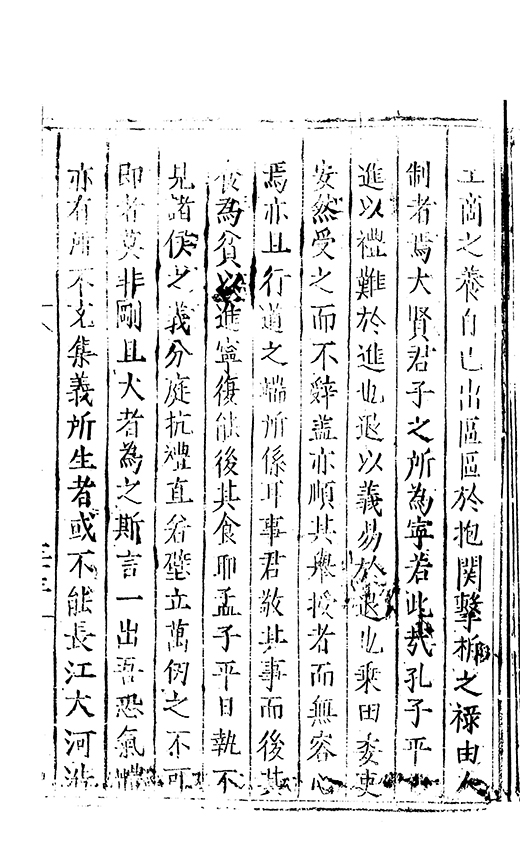 工商之養自已出區區於抱関擊柝之禄由人
制者焉大賢君子之所為寧若此哉孔子平
進以禮難於進也退以義易於退也乗田委吏
安然受之而不辭盖亦順其舉授者而無容心
焉亦且行道之端所係耳事君敬其事而後其
食為貧以進寧復能後其食耶孟子平日執不
見諸侯之義分庭抗禮直若壁立萬仞之不可
即者莫非剛且大者為之斯言一出吾恐氣體
亦有所不充集義所生者或不能長江大河浩